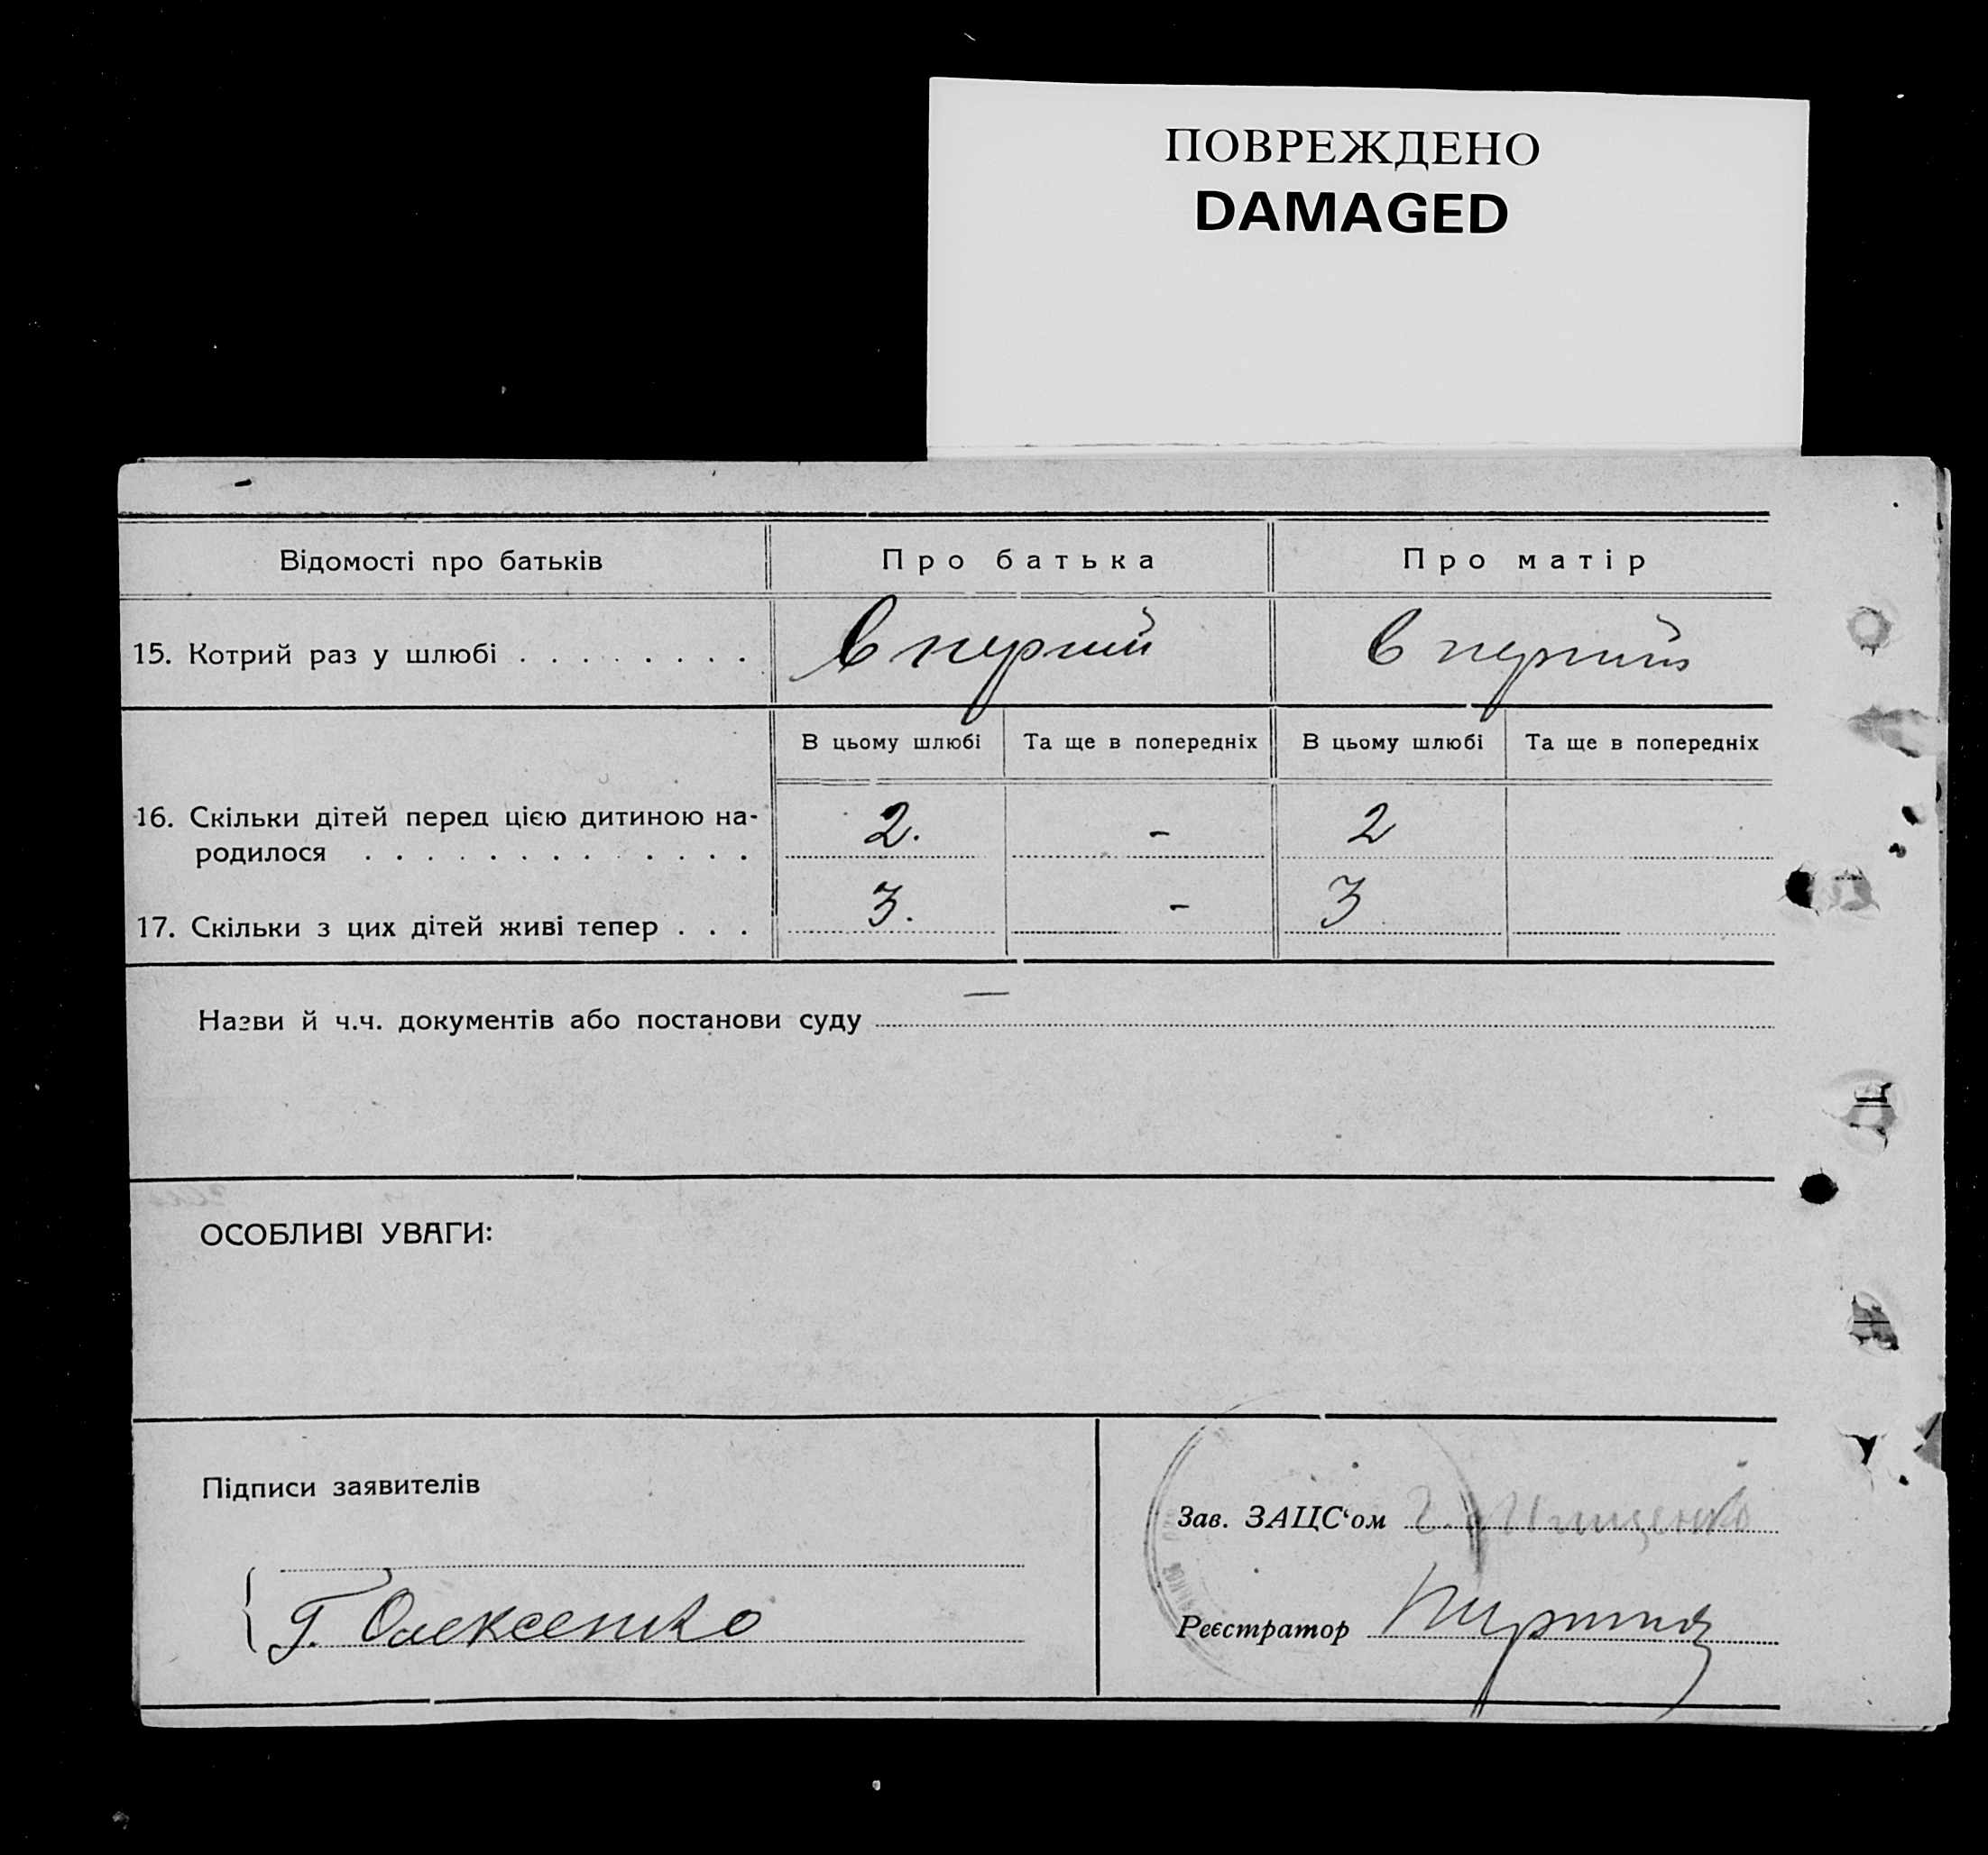 ПОВРЕЖДЕНО
DAMAGED
Відомості про батьків Про батька Про матір
15. Котрий раз у шлюбі . . . . . . . . В перший В перший
В цьому шлюбі Та ще в попередніх В цьому шлюбі Та ще в попередніх
16. Скільки дітей перед цією дитиною на-
родилося . . . . . . . . . . . . . 2. - 2
17. Скільки з цих дітей живі тепер . . . 3. - 3
Назви й ч.ч. документів або постанови суду —
ОСОБЛИВІ УВАГИ:
Підписи заявителів
Зав. ЗАЦС‘ом
Г. Олексенко
Реєстратор